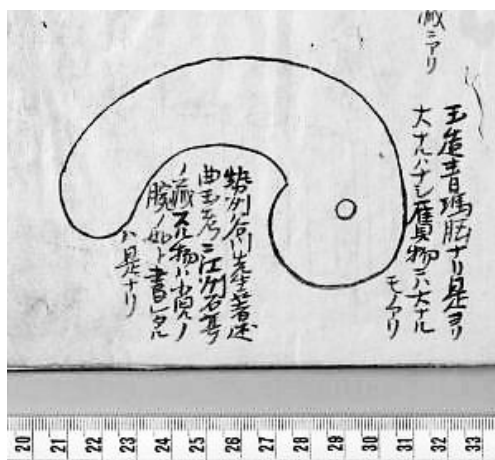 蔵ニアリ
玉造青瑪脳ナリ是ヨリ
大ナルハナシ贋物ニハ大ナル
モノアリ
勢州谷川先生著述
曲玉考ニ江州石亭
ノ蔵スル物ハ小児ノ
腕ノ如ト書レタル
ハ是ナリ
20 21 22 23 24 25 26 27 28 29 30 31 32 33